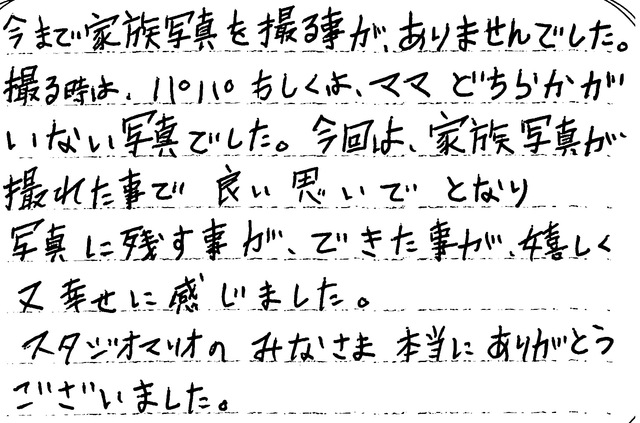 今まで家族写真を撮る事が、ありませんでした。
撮る時は、パパ もしくは、ママ どちらかが
いない写真でした。今回は、家族写真が
撮れた事で 良い思いで となり
写真に残す事が、できた事が、嬉しく
又 幸せに感じました。
スタジオマリオの みなさま 本当に ありがとう
ございました。